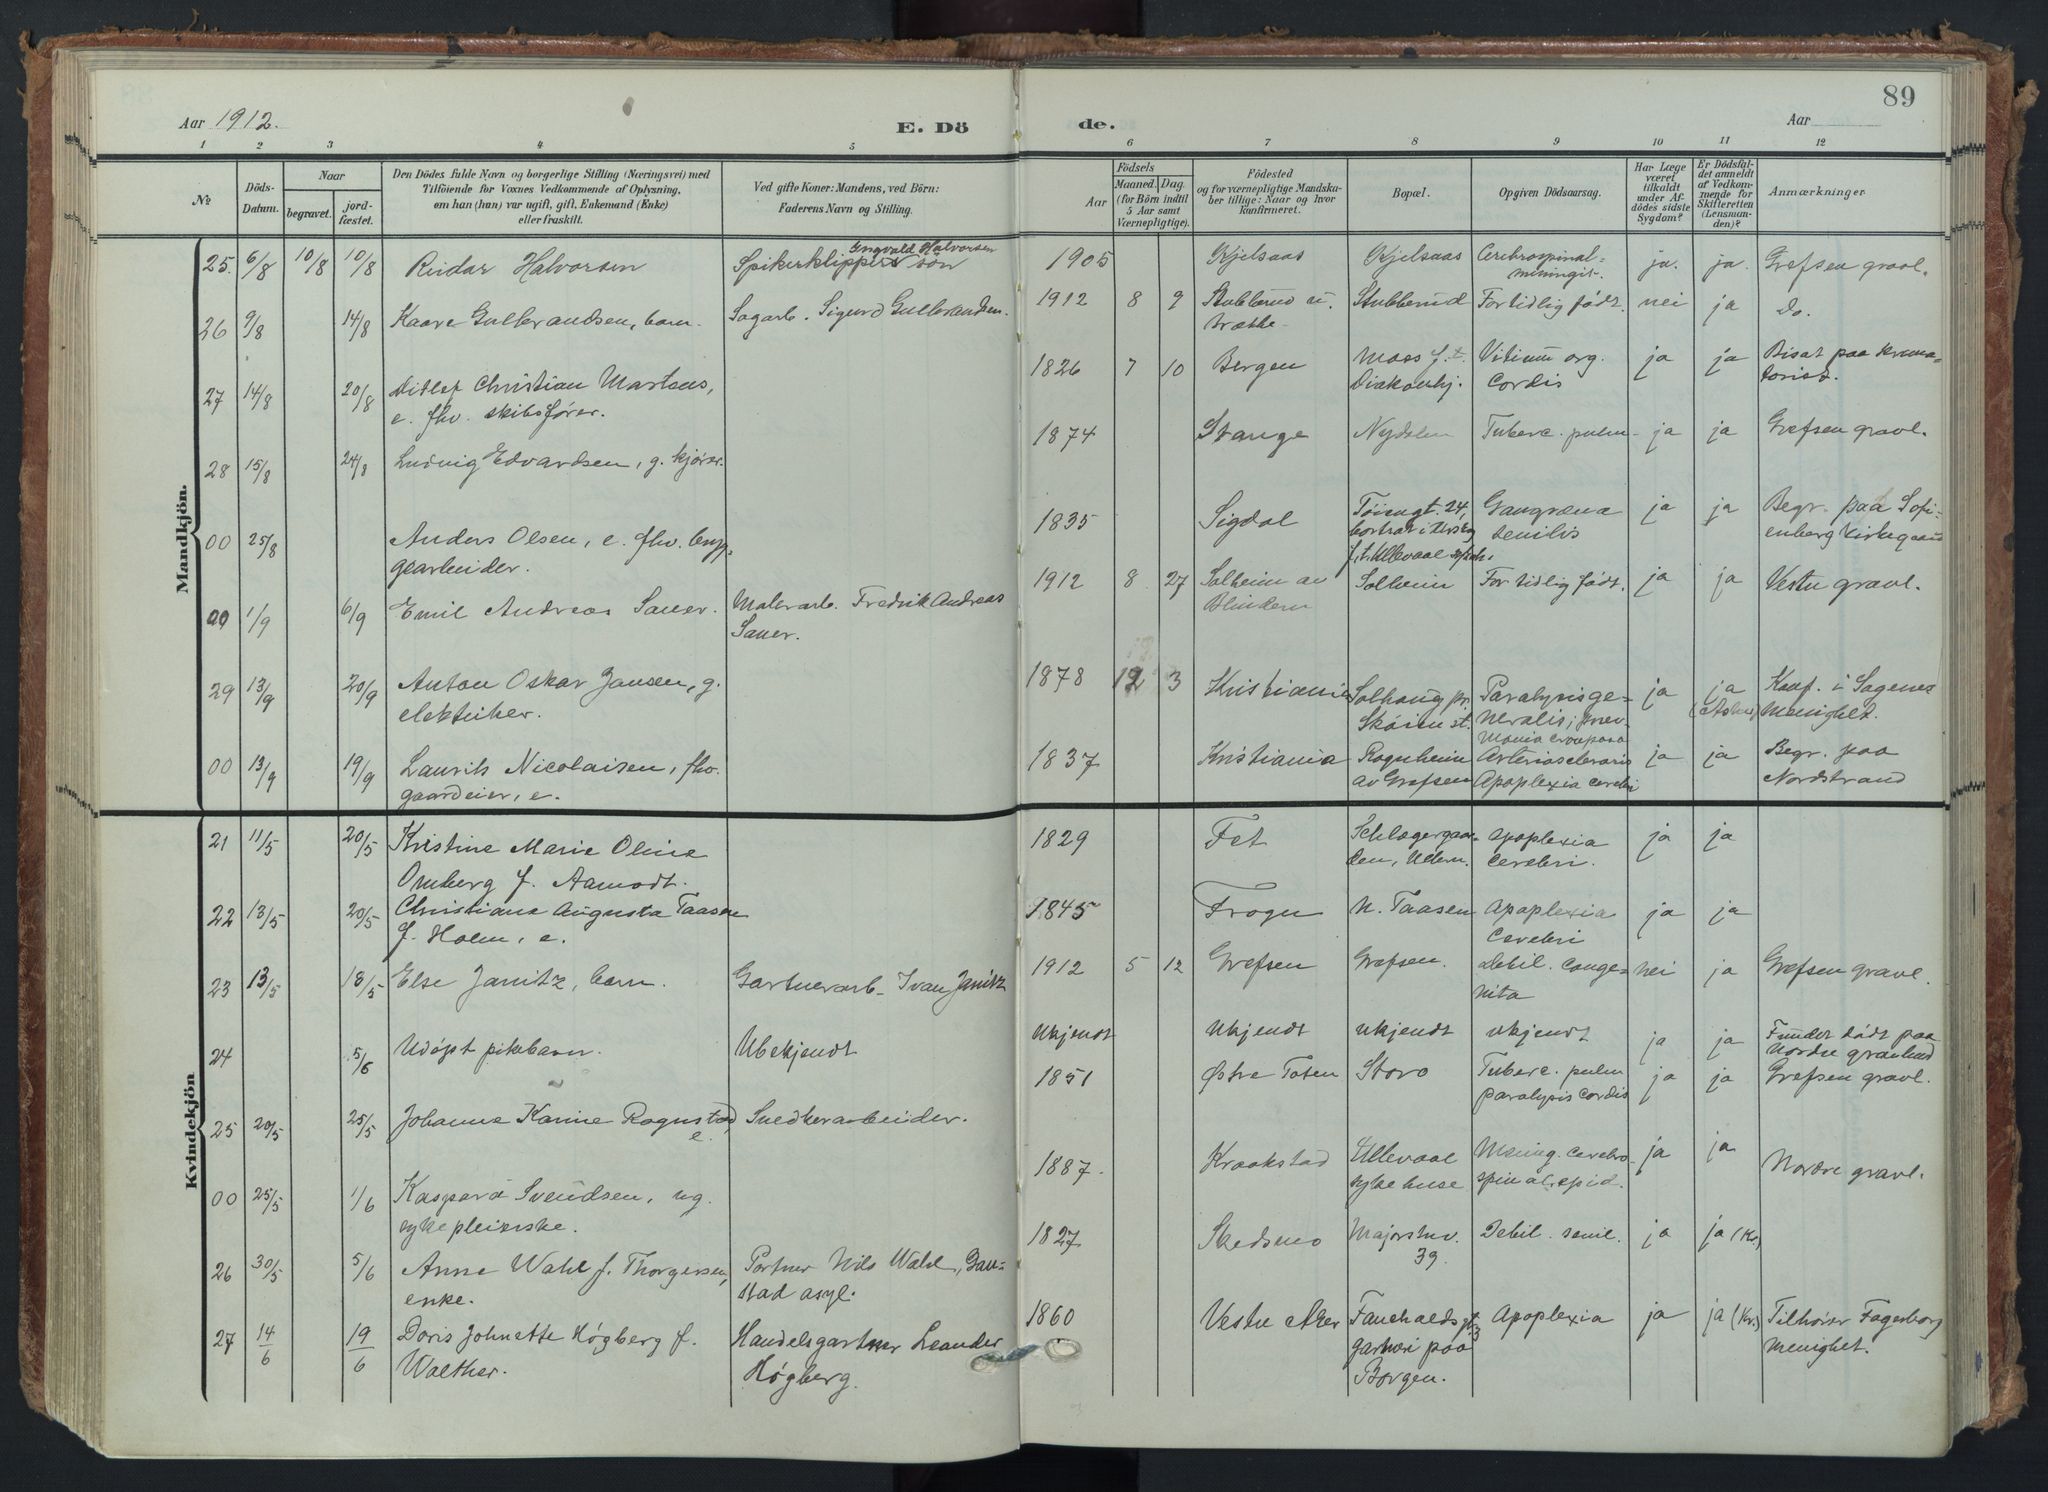 89
Aar 1912.
E. Dö de.
Aar
1 2 3 4 5 6 7 8 9 10 11 12
№
Döds-Datum.
Naar
begravet.
jord-fæstet.
Den Dödes fulde Navn og borgerlige Stilling (Næringsvei) med
Tilföiende for Voxnes Vedkommende af Oplysning,
om han (hun) var ugift, gift, Enkemand (Enke)
eller fraskilt.
Ved gifte Koner: Mandens, ved Börn:
Faderens Navn og Stilling.
Födsels
Aar
Maaned. Dag.
(for Börn indtil
5 Aar samt
Værnepligtige).
Födested
og for værnepligtige Mandska-
ber tillige: Naar og hvor
konfirmeret.
Bopæl.
Opgiven Dödsaarsag.
Har Læge
været
tilkaldt
under Af-
dödes sidste
Sygdom?
Er Dödsfal-
det anmeldt
af Vedkom-
mende for
Skifteretten
(Lensman-
den)?
Anmærkninger.
Mandkjön.
25. 6/8 10/8 10/8 Reidar Halvorsen Spikerklipper Ingvald Halvorsen sön 1905 Kjelsaas Kjelsaas Cerebrospinal-
meningit. ja. ja. Grefsen gravl.
26 9/8 14/8 Kaare Gulbrandsen, barn. Sagarb. Sigurd Gulbrandsen. 1912 8 9 Stubberud u.
trætte Stubberud For tidlig född. nei ja Do.
27 14/8 20/8 Ditlef Christian Martens,
e. fhv. skibsfører. 1826 7 10 Bergen Moss f. t.
Diakonhj. Vitium org.
Cordis ja ja Bisat paa krema-
toriet.
28 15/8 24/8 Ludvig Edvardsen, g. kjører. 1874 Stange Nydalen Tuberc. pulm. ja ja Grefsen gravl.
00 25/8 Anders Olsen, e. fhv. brygg-
gearbeider. 1835 Sigdal Tøiengt. 24,
f. t. Ullevaal sykeh. Gangræna
senilis ja ja Begr. paa Sofi-
enberg kirkegaard
00 1/9 6/9 Emil Andreas Sauer. Malerarb. Fredrik Andreas
Sauer. 1912 8 27 Solheim av
Blindern Solheim For tidlig född. ja ja Vestre gravl.
29 13/9 20/9 Anton Oskar Jansen, g.
elektriker. 1878 12 3 Kristiania Solhaug pr.
Skøien st. Paralysis ge-
neralis; pnev-
monia crouposa ja ja
(Asker) Konf. i Sagenes
menighet.
00 13/9 19/9 Laurits Nicolaisen, fhv.
gaardeier, e. 1837 Kristiania Rognheim
av Grefsen Arteriosclerosis
Apoplexia cerebri ja ja Begr. paa
Nordstrand
Kvindekjön
21 11/5 20/5 Kristine Marie Oline
Omberg f. Aamodt. 1829 Fet Schlægergaar-
den, Ullern. Apoplexia
cerebri. ja ja
22 13/5 20/5 Christiane Augusta Taasen
f. Holm, e. 1845 Frogn N. Taasen Apoplexia
Cerebri ja ja
23 13/5 18/5 Else Janitz, barn. Gartnerarb. Ivan Janitz 1912 5 12 Grefsen Grefsen. Debil. conge-
nita nei ja Grefsen gravl.
24 5/6 Udøpt pikebarn. Ubekjendt Ukjendt Ukjendt ukjendt ukjendt ja ja Fundet dödt paa
Nordre gravlund
25 20/5 25/5 Johanne Karine Rognstad,
e. Snedkerarbeider. 1851 Østre Toten Storo Tuberc. pulm
paralysis cordis ja ja Grefsen gravl.
00 25/5 1/6 Kaspara Svendsen, ug.
sykepleierske. 1887. Kraakstad Ullevaal
sykehuse Mening. cerebro-
spinal. epid. ja ja Nordre gravl.
26 30/5 5/6 Anne Wahl f. Thorgersen,
enke. Portner Nils Wahl, Gau-
stad asyl. 1827 Skedsmo Majorstuv.
39. Debil. senil. ja ja (Kr.)
27 14/6 19/6 Doris Johnette Høgberg f.
Walther. Handelsgartner Leander
Høgberg. 1860 Vestre Aker Fauchaldsgt. 3
gartneri paa
Borgen. Apoplexia ja ja (Kr.) Tilhører Fagerborg
menighet.